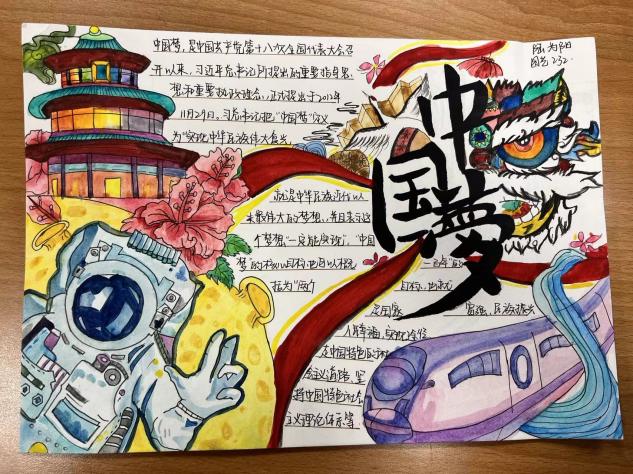 中国梦，是中国共产党第十八次全国代表大会召
开以来，习近平总书记所提出的重要指导思
想和重要执政理念，正式提出于2012年
11月29日。习总书记把"中国梦"定义
为"实现中华民族伟大复兴
就是中华民族近代以
来最伟大的梦想，并且表示这
个梦想"一定能实现"，"中国
梦"的核心目标也可以概
括为"两个
一百年"的
目标，也就是
国家
富强，民族振兴
人民幸福，实现途径
是中国特色的社
会主义道路、坚
持中国特色社会
主义理论体系等
中国梦
232